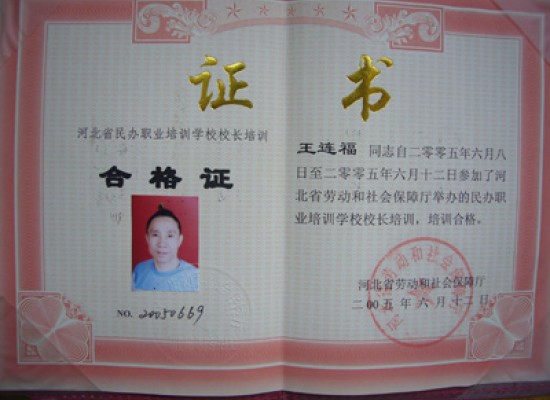 证 书
河北省民办职业培训学校校长培训
合格证
NO. 20050669
王连福 同志自二零零五年六月八
日至二零零五年六月十二日参加了河
北省劳动和社会保障厅举办的民办职
业培训学校校长培训，培训合格。
河北省劳动和社会保障厅
二00五年六月十二日